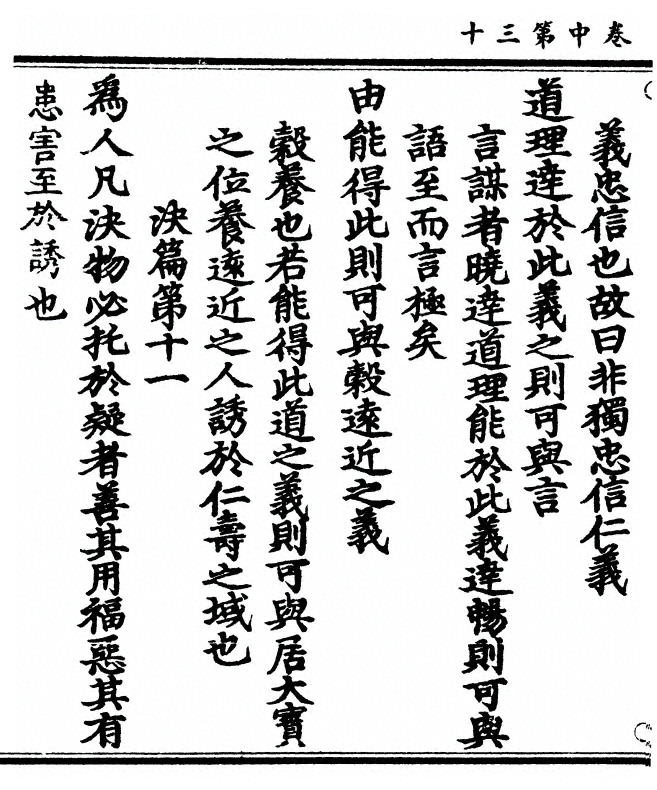 卷中第三十
義忠信也故曰非獨忠信仁義
道理達於此義之則可與言
言謀者曉達道理能於此義達暢則可與
語至而言極矣
由能得此則可與穀遠近之義
穀養也若能得此道之義則可與居大寶
之位養遠近之人誘於仁壽之域也
決篇第十一
為人凡決物必托於疑者善其用福惡其有
患害至於誘也